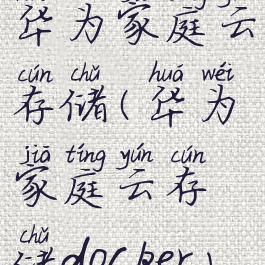 华为家庭云
cún chǔ huá wéi
存储(华为
jiā tíng yún cún
家庭云存
chǔ
储docker)